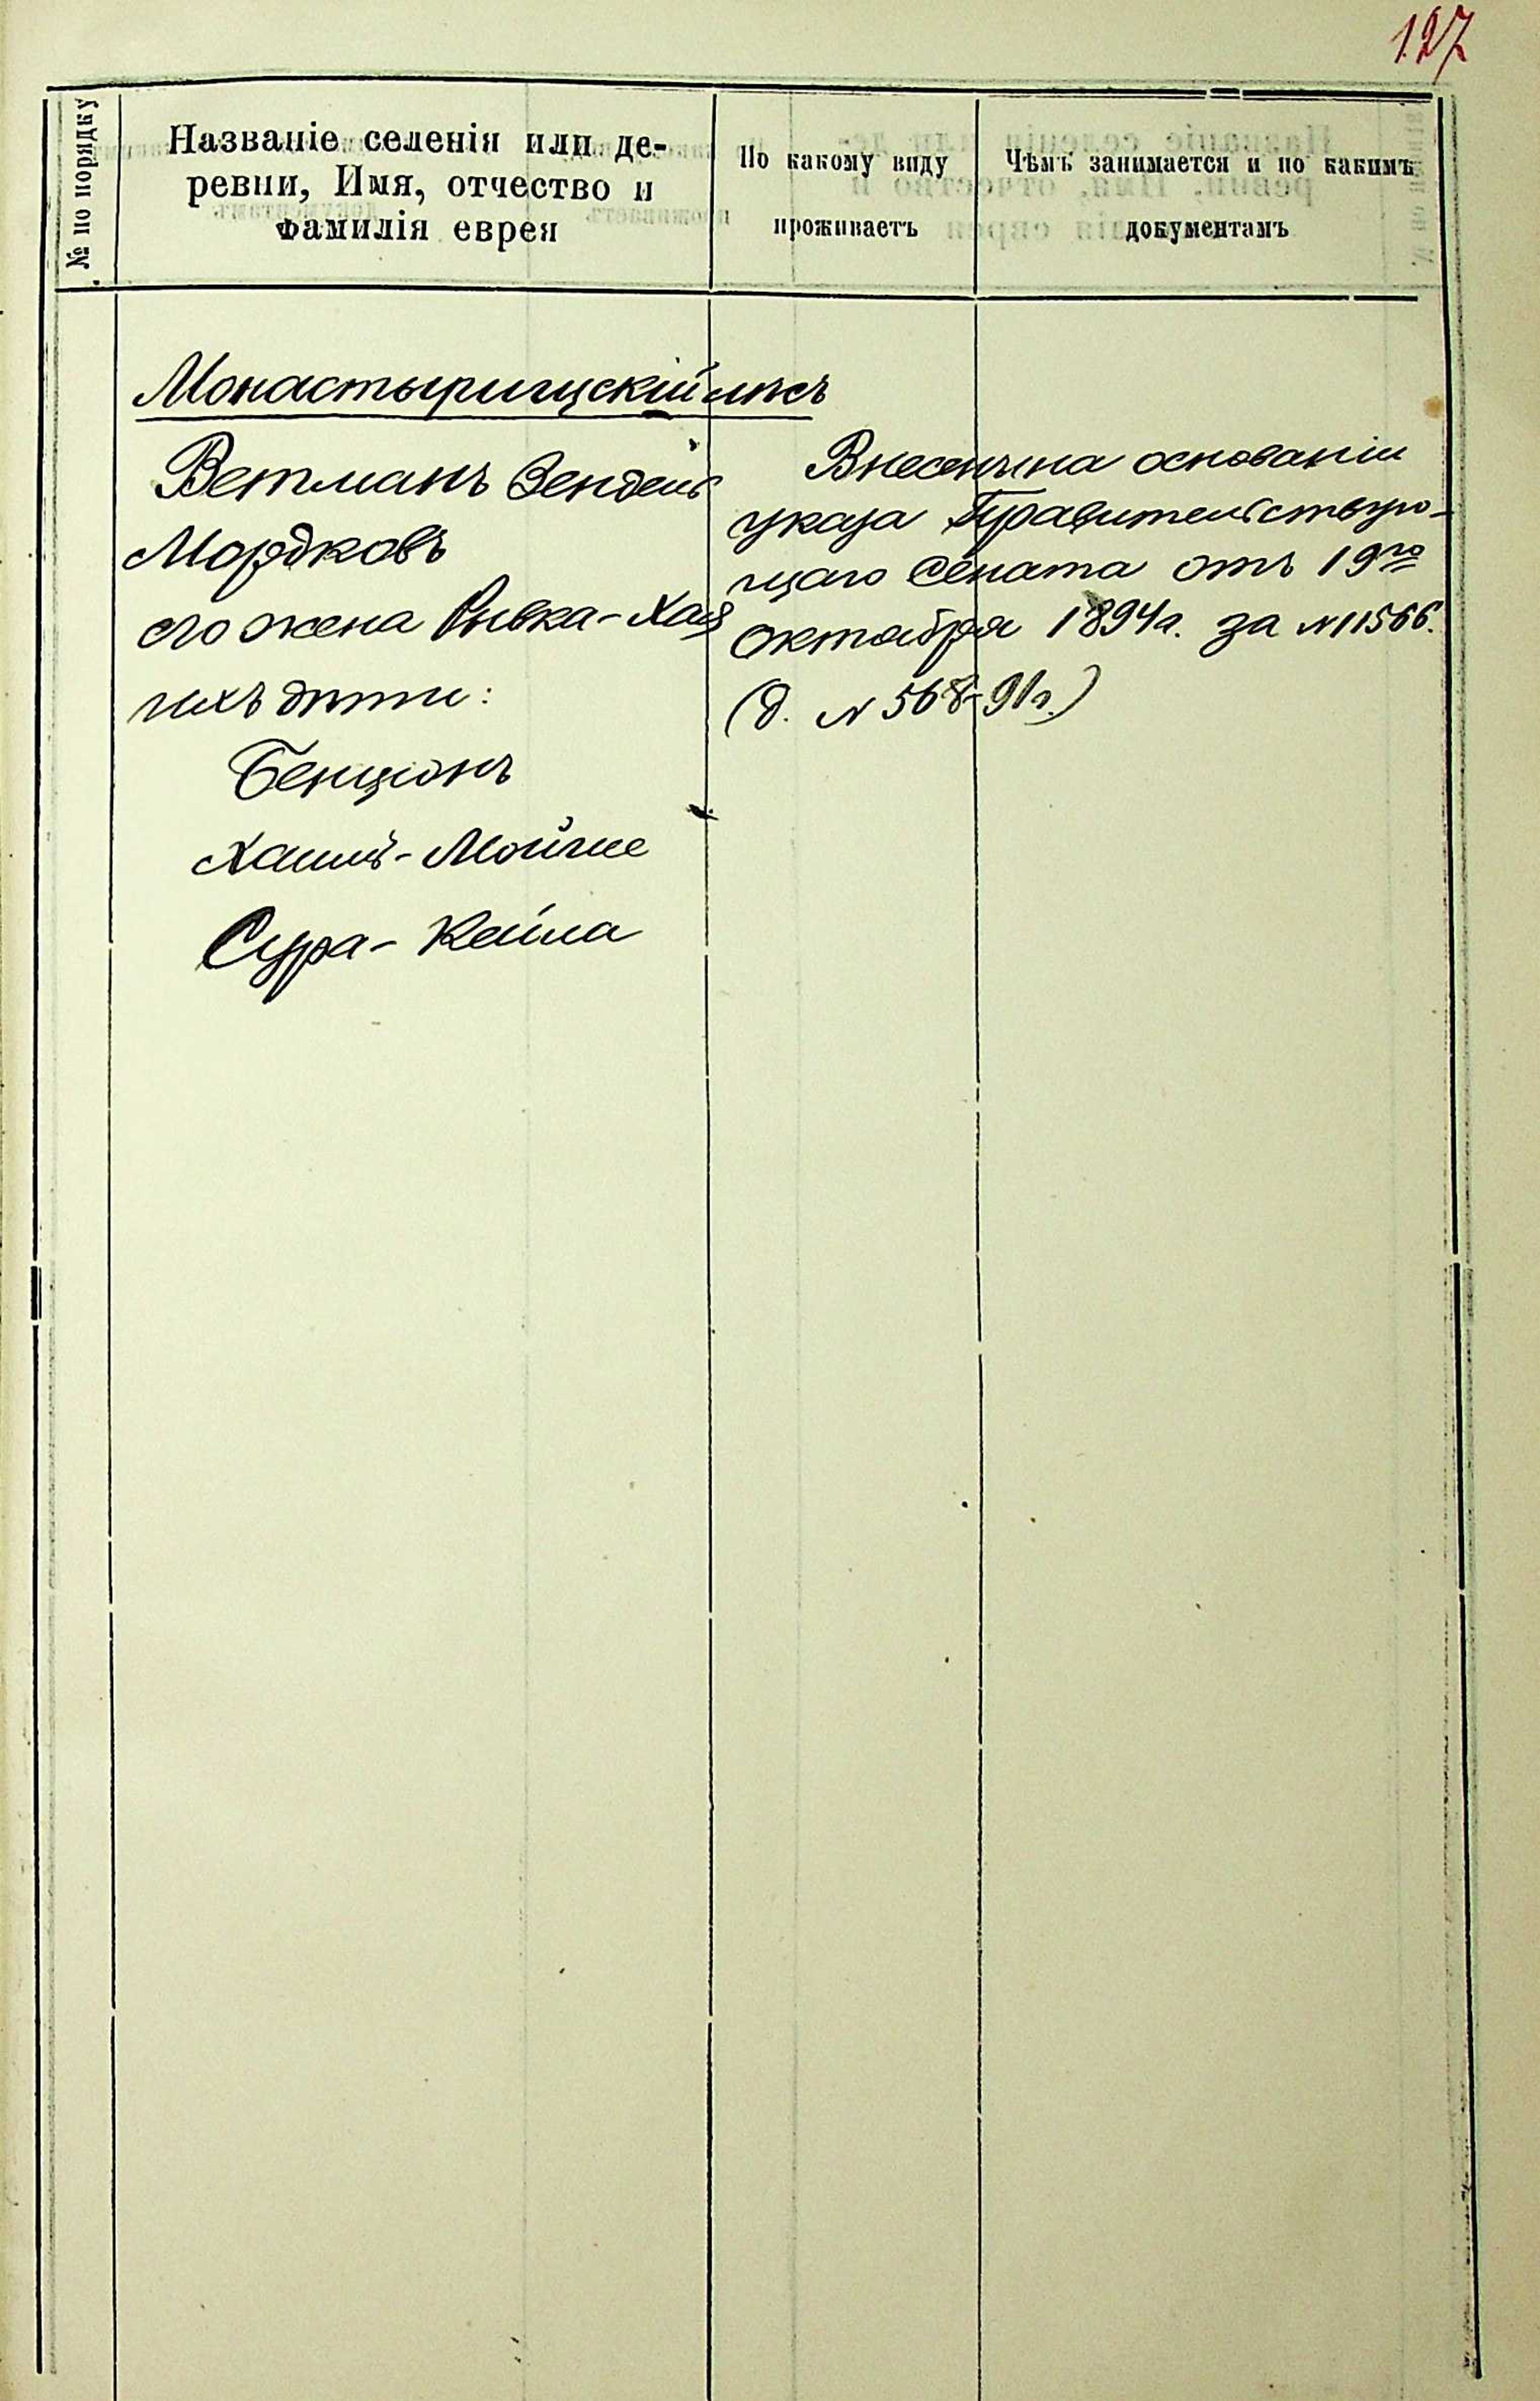 127
№ по порядку
Названіе селенія или де-
ревни, Имя, отчество и
фамилія еврея
По какому виду
проживаетъ
Чѣмъ занимается и по какимъ
документамъ
Монастырищскій лѣсъ
Ветманъ Зендель
Мордковъ
его жена Рывка-Хая
ихъ дѣти:
Бенціонъ
Хаимъ-Мойше
Сура-Кейла
Внесены на основаніи
указа Правительствую-
щаго Сената отъ 19го
октября 1894г. за №11566.
(д. № 568-91г.)